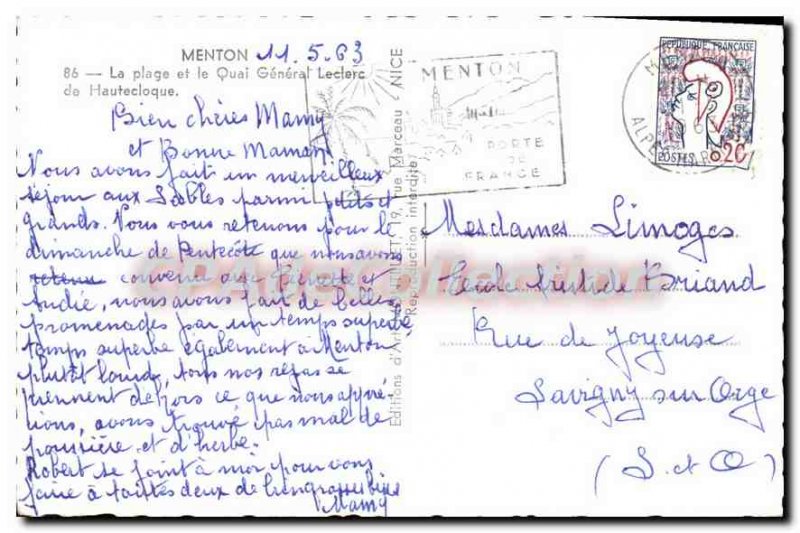 MENTON 11.5.63
86 — La plage et le Quai Général Leclerc
de Hautecloque.
Bien chères Mamy
et Bonne Maman
Nous avons fait un merveilleux
séjour aux Sables parmi petits et
grands. Vous vous retenons pour le
dimanche de Pentecôte que nous avons
retenu convenu avec et
Andié, nous avons fait de belles
promenades par un temps superbe
temps superbe également à Menton
plutôt lourd, tous nos repas se
prennent dehors ce que nous appré-
cions, avons trouvé pas mal de
poussière et d'herbe.
Robert se joint à moi pour vous
faire à toutes deux de bien grosses bises
Mamy
Editions d'Art 19, rue Marceau - NICE
Reproduction interdite
MENTON
PORTE
DE
FRANCE
REPUBLIQUE FRANCAISE
POSTES
0,20
Mesdames Limoges
Ecole Aristide Briand
Rue de Joyeuse
Savigny sur Orge
(S. et O)